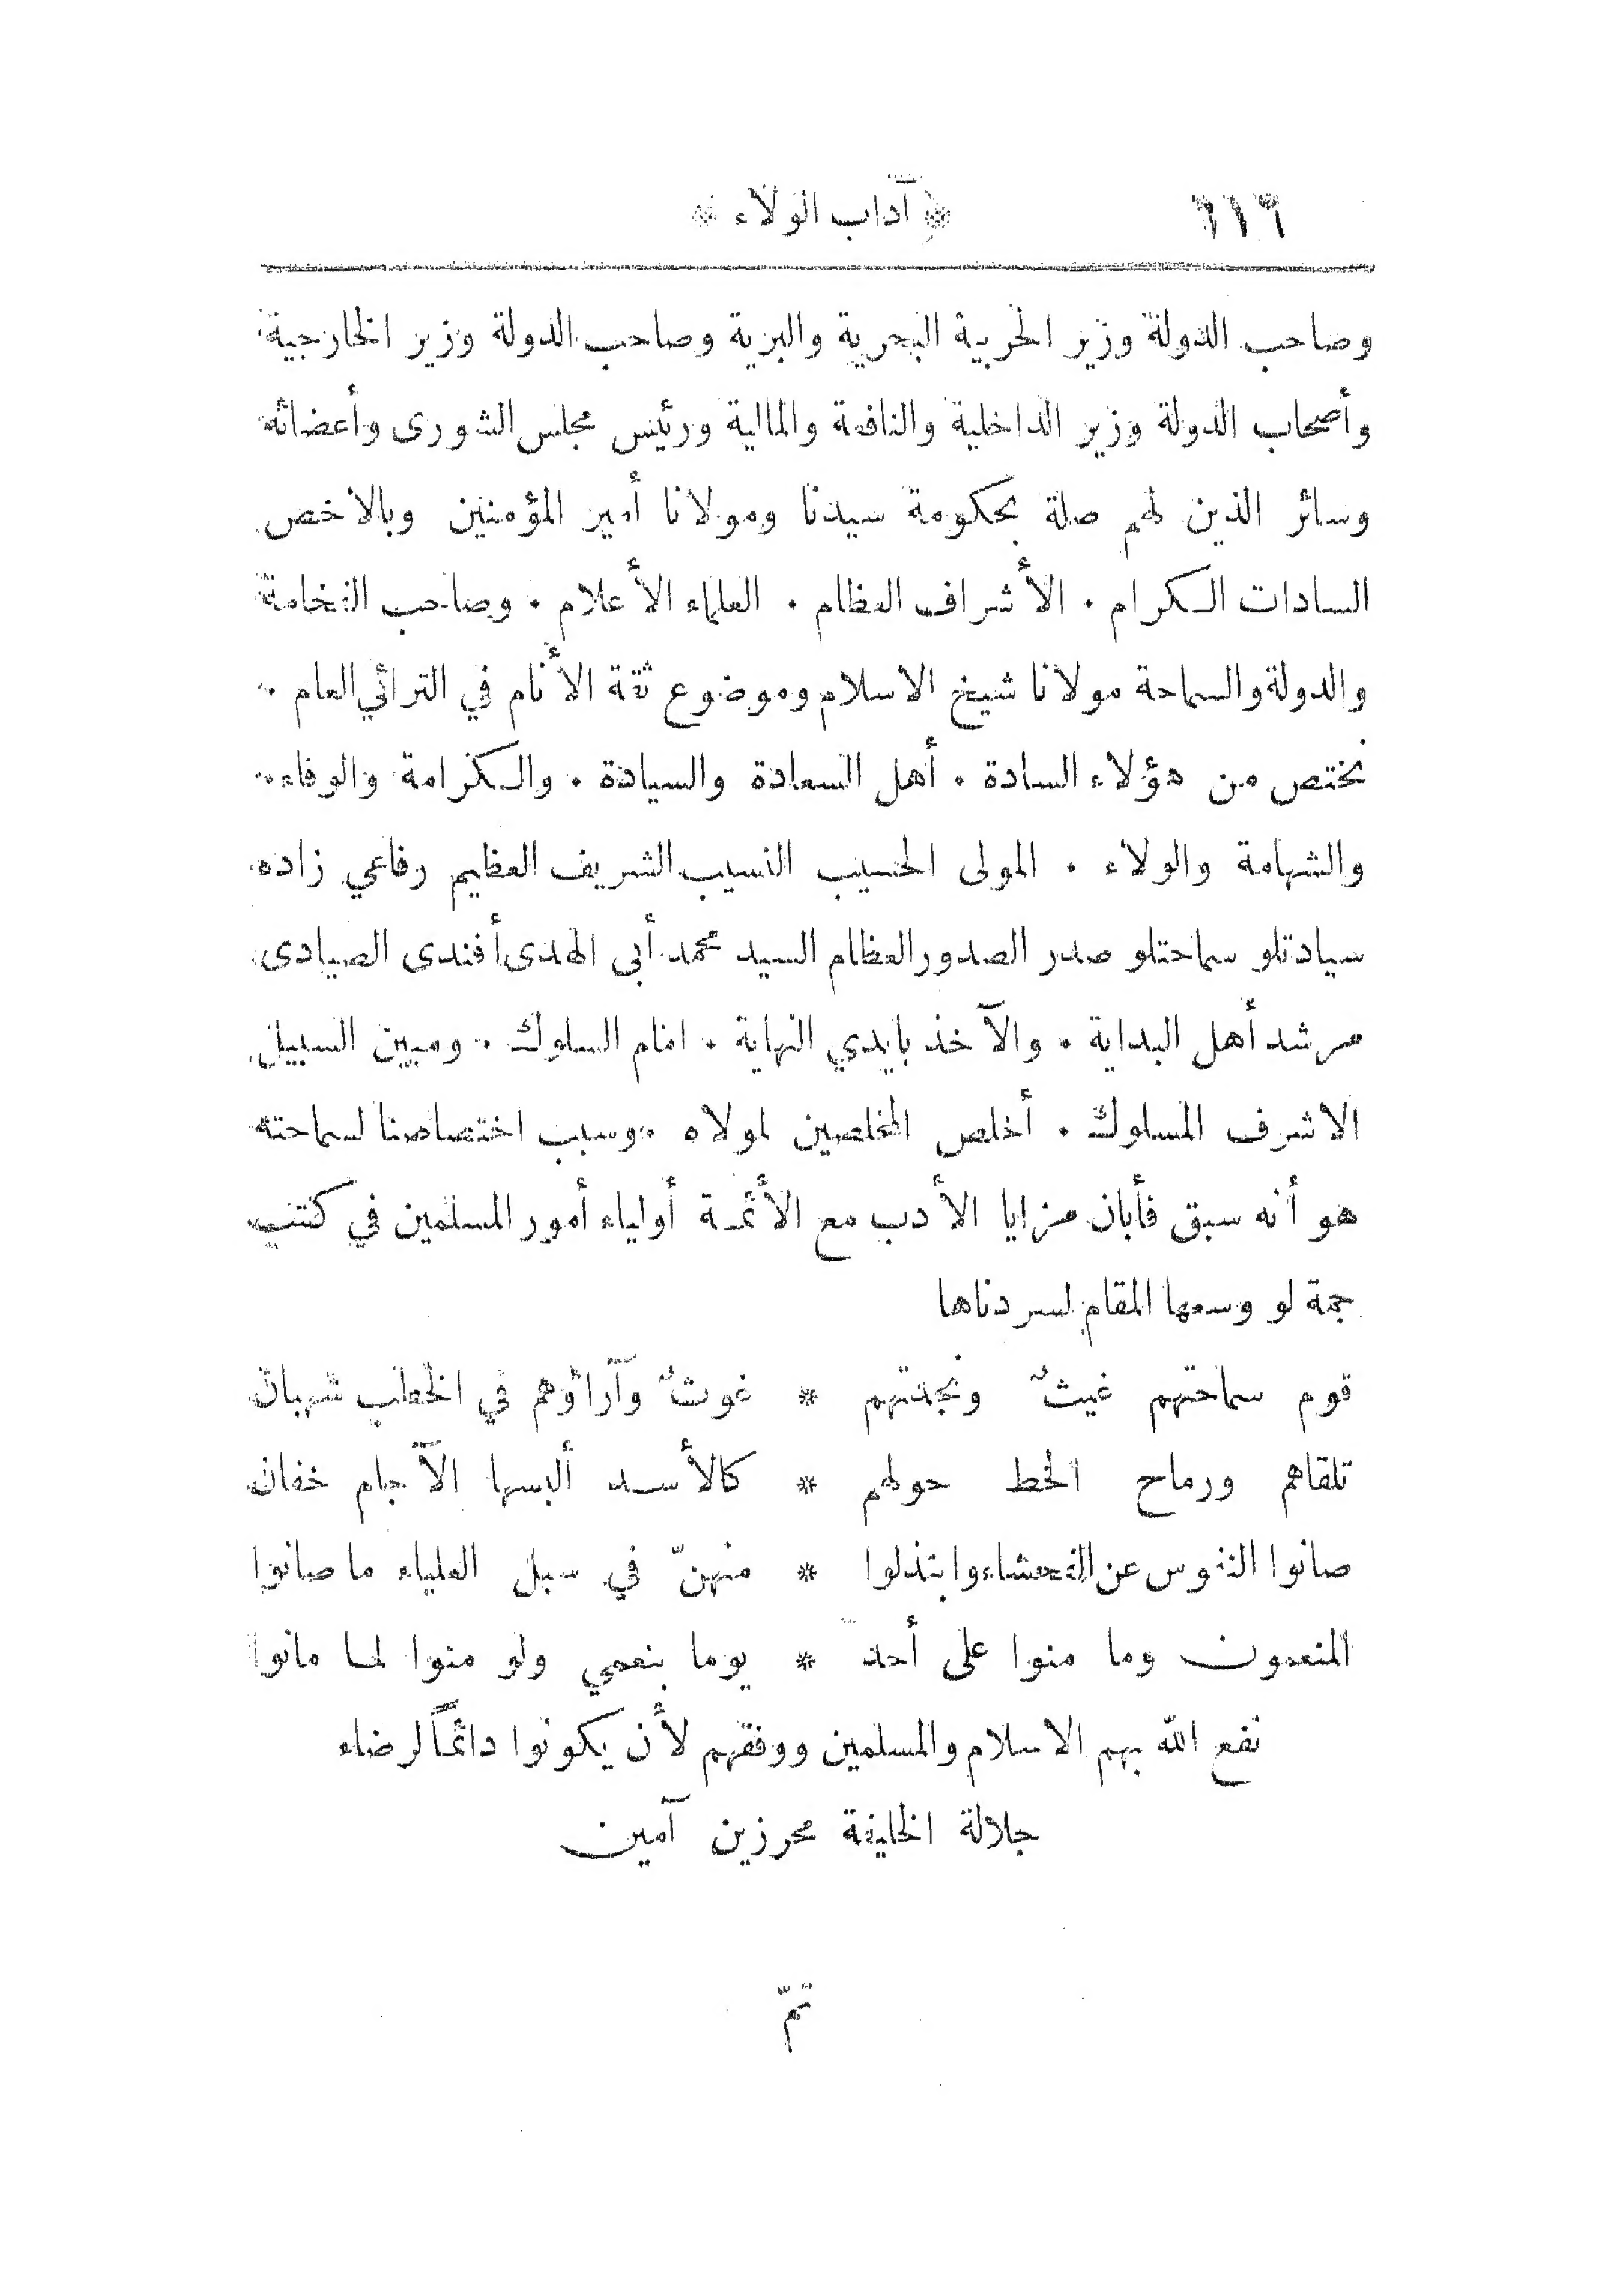 ﴿ آداب الولاء ﴾
وصاحب الدولة وزير الحربية البحرية والبرية وصاحب الدولة وزير الخارجية
وأصحاب الدولة وزير الداخلية والنافعة والمالية ورئيس مجلس الشورى وأعضائه
وسائر الذين لهم صلة بحكومة سيدنا ومولانا أمير المؤمنين وبالاخص
السادات الكرام . الأشراف العظام . العلماء الأعلام . وصاحب الفخامة
والدولة والسماحة مولانا شيخ الاسلام وموضوع ثقة الأنام في الترائي العام .
نختص من هؤلاء السادة . أهل السعادة والسيادة . والكرامة والوفاء .
والشهامة والولاء . المولى الحسيب النسيب الشريف العظيم رفاعي زاده
سيادتلو سماحتلو صدر الصدور العظام السيد محمد أبى الهدى أفندى الصيادى
مرشد أهل البداية . والآخذ بايدي النهاية . امام السلوك . ومبين السبيل
الاشرف المسلوك . أخلص المخلصين لمولاه . وسبب اختصاصنا لسماحته
هو أنه سبق فأبان مزايا الأدب مع الأئمة أولياء أمور المسلمين في كتب
جمة لو وسعها المقام لسردناها
قوم سماحتهم غيثٌ ونجدتهم * غوثٌ وآراؤهم في الخطب شهبان
تلقاهم ورماح الخط حولهم * كالأسد ألبسها الآجام خفان
صانوا النفوس عن الفحشاء وابتذلوا * منهنّ في سبل العلياء ما صانوا
المنعمون وما منوا على أحد * يوما بنعمي ولو منوا لما مانوا
نفع الله بهم الاسلام والمسلمين ووفقهم لأن يكونوا دائماً لرضاء
جلالة الخليفة محرزين آمين
تمّ